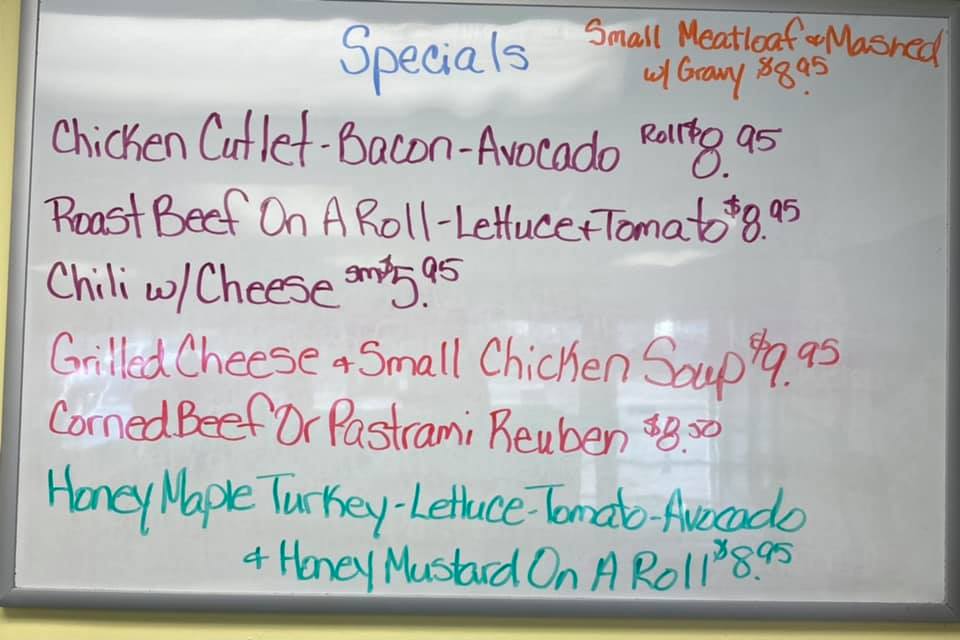 Specials
Small Meatloaf & Mashed
w/ Gravy $8.95
Chicken Cutlet-Bacon-Avocado Roll $8.95
Roast Beef On A Roll-Lettuce+Tomato $8.95
Chili w/ Cheese sm $5.95
Grilled Cheese & Small Chicken Soup $9.95
Corned Beef Or Pastrami Reuben $8.50
Honey Maple Turkey-Lettuce-Tomato-Avocado
& Honey Mustard On A Roll $8.95